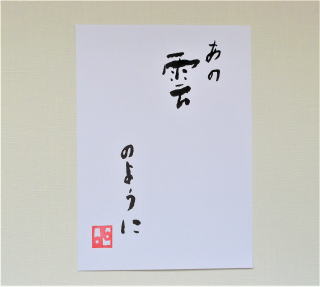 あの
雲
のように